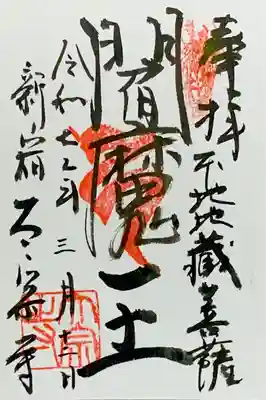 奉拝 本地地蔵菩薩
閻魔王
令和七年三月十二日
新宿 太宗寺